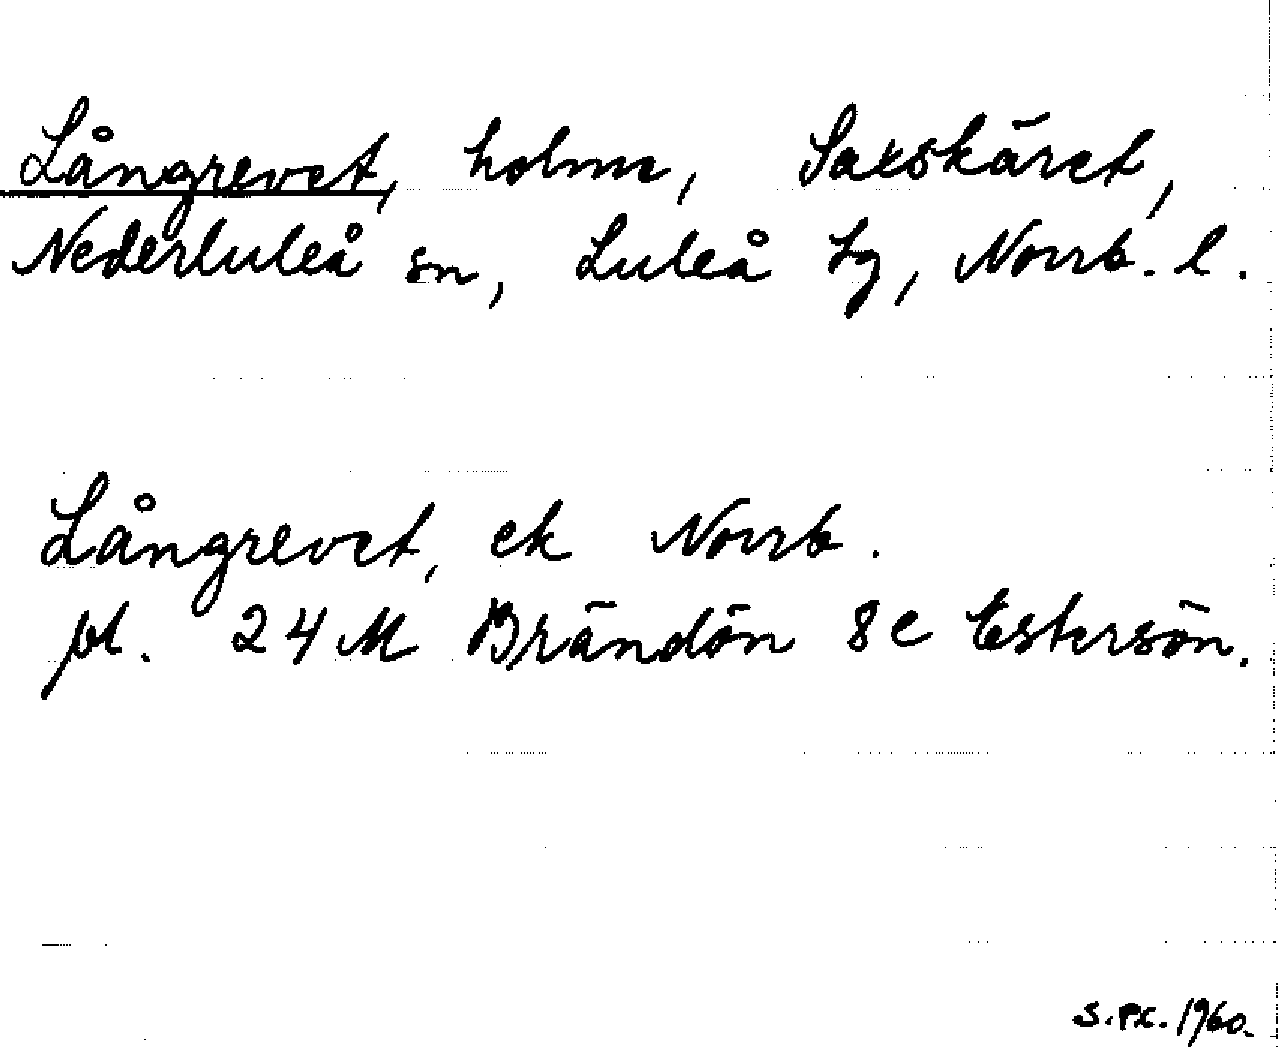 Långrevet, holme, Saxskäret,
Nederluleå sn, Luleå tg, Norrb. l.
Långrevet, ek Norrb.
pl. 24 M Brändön 8c Estersön.
S.PX. 1960.